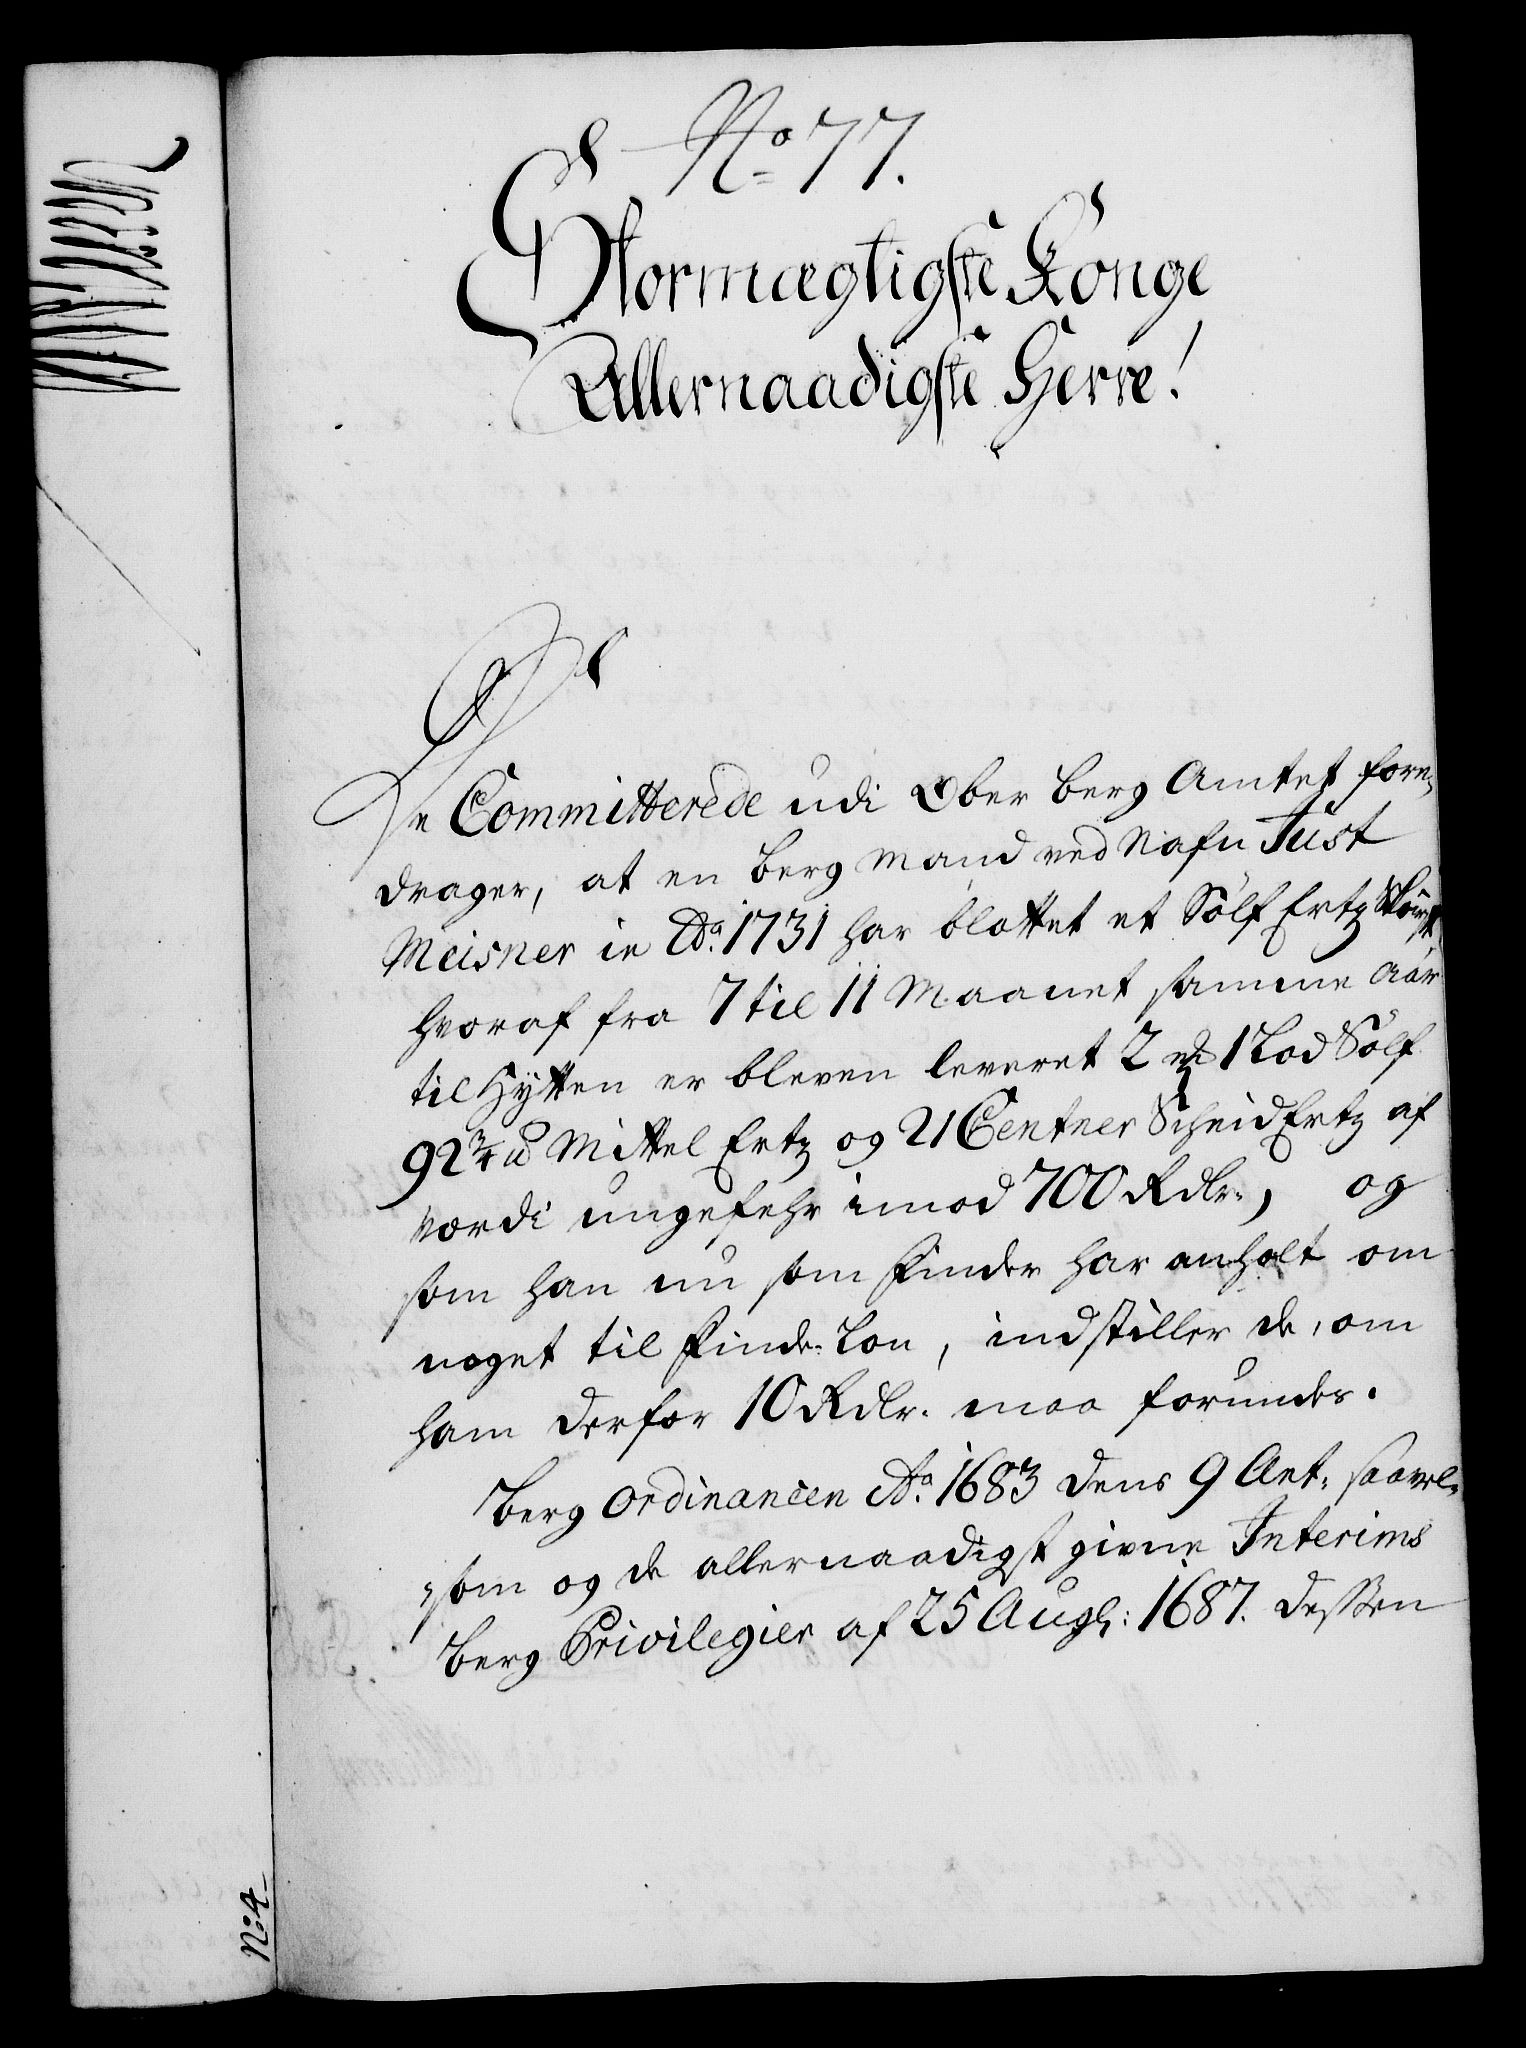 No 77.
Stormægtigste Konge
Allernaadigste Herre!
De Committerede udi Ober Berg Amtet fore,
drager, at en Berg Mand ved Nafn Just
Meisner in Ao. 1731 har blottet et Sölf Ertz
hvoraf fra 7 til 11 Maanet samme Aar
til Hytten er bleven leveret 2 1 Lod Sölf
92 3/4 Mittel Ertz og 21 Centner ScheidErtz af
værdi ungefehr imod 700 Rdlr., og
som han nu som Finder har anholt om
noget til Finde-Lön, indstiller de, om
ham derfor 10 Rdlr. maa forundes.
Berg Ordinancen Ao. 1683 dens 9 Art: saavel-
som og de allernaadigst givne Interims
Berg Privilegier af 25 Aug: 1687. dessen
No: 4